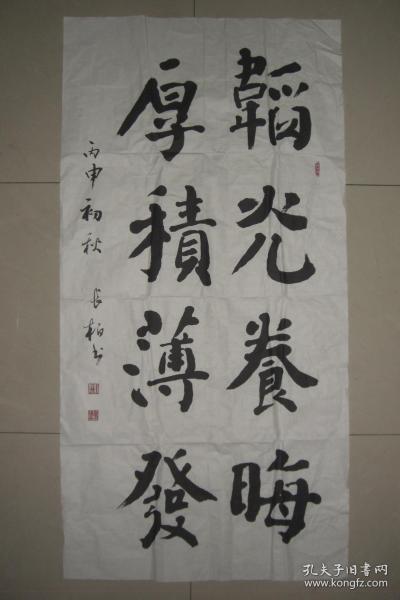 韜光養晦
厚積薄發
丙申初秋 長柏书
孔夫子旧书网
www.kongfz.com